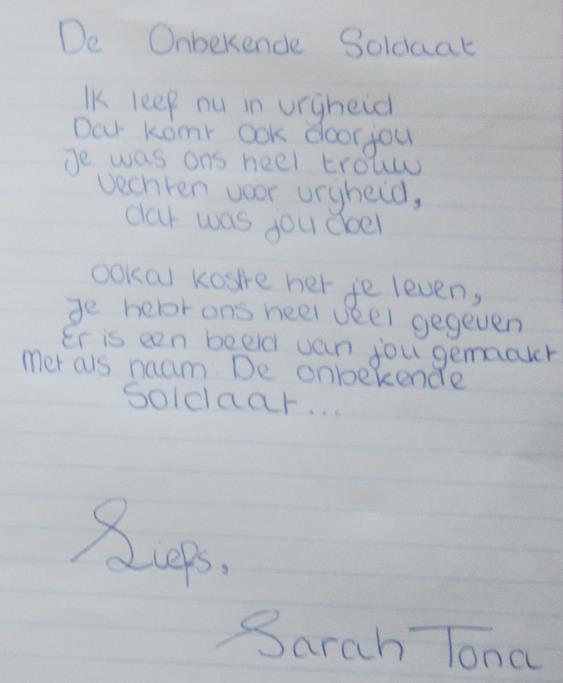 De Onbekende Soldaat
Ik leef nu in vrijheid
Dat komt ook door jou
Je was ons heel trouw
Vechten voor vrijheid,
dat was jou doel
ookal kostte het je leven,
Je hebt ons heel veel gegeven
Er is een beeld van jou gemaakt
Met als naam: De onbekende
Soldaat...
Liefs,
Sarah Tona